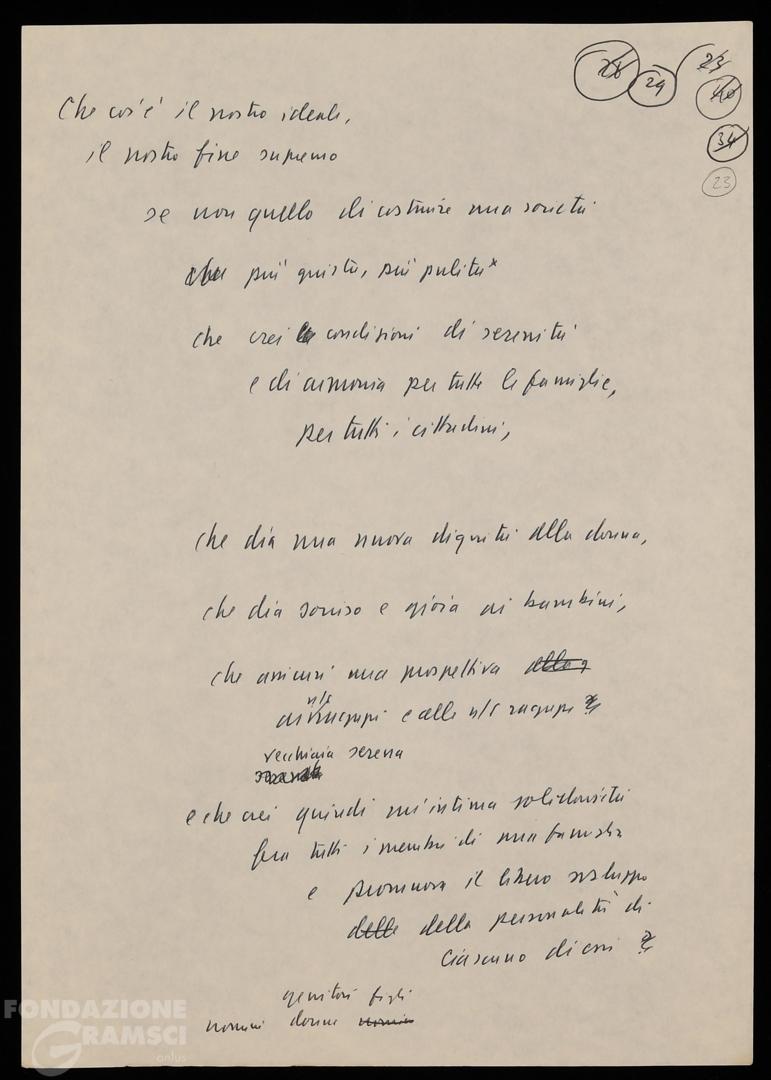 28 29 23
40
34
23
Che cos'è il nostro ideale,
il nostro fine supremo
se non quello di costruire una società
che più giusta, più pulita*
che crei le condizioni di serenità
e di armonia per tutte le famiglie,
per tutti i cittadini,
che dia una nuova dignità alla donna,
che dia sorriso e gioia ai bambini,
che assicuri una prospettiva alla
n/s
ai ragazzi e alle n/s ragazze
vecchiaia serena
e che crei quindi un'intima solidarietà
fra tutti i membri di una famiglia
e promuova il libero sviluppo
delle della personalità di
ciascuno di essi
genitori figli
uomini donne uomini
FONDAZIONE
GRAMSCI
onlus